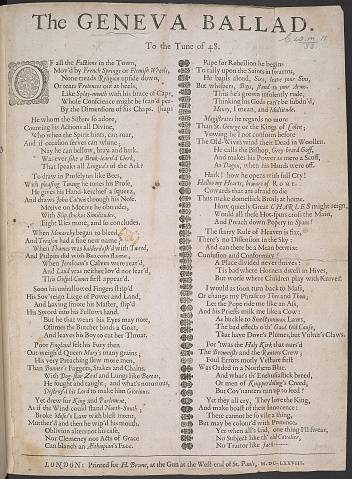 The GENEVA BALLAD.
To the Tune of 48.
OF all the Factions in the Town,
Mov'd by French Springs or Flemish Wheels,
None treads Religion upside down,
Or tears Pretences out at heels,
Like Splay-mouth with his brace of Caps,
Whose Conscience might be scan'd per-
By the Dimensions of his Chaps. [haps
He whom the Sisters so adore,
Counting his Actions all Divine,
Who when the Spirit hints, can roar,
And if occasion serves can whine;
Nay he can bellow, bray, and bark.
Was ever sike a Beuk-learn'd Clerk,
That speaks all Linguas of the Ark?
To draw in Proselytes like Bees,
With pleasing Twang he tones his Prose,
He gives his Hand-kerchief a squeez,
And draws John Calvin through his Nose.
Motive on Motive he obtrudes,
With Slip-stocking Similitudes,
Eight Uses more, and so concludes.
When Monarchy began to bleed,
And Treason had a fine new name;
When Thames was balderdash'd with Tweed,
And Pulpits did with Beacons flame;
When Jeroboam's Calves were rear'd,
And Laud was neither lov'd nor fear'd,
This Gospel-Comet first appear'd.
Soon his unhallowed Fingers strip'd
His Sov'reign Liege of Power and Land,
And having smote his Master, slip'd
His Sword into his Fellow's hand.
But he that wears his Eyes may note,
Oft-times the Butcher binds a Goat,
And leaves his Boy to cut her Throat.
Poor England felt his Fury then
Out-weigh'd Queen Mary's many grains;
His very Preaching slew more men,
Than Bonner's Faggots, Stakes and Chains.
With Dog-star Zeal and Lungs like Boreas,
He fought and taught; and what's notorious,
Destroy'd his Lord to make him Glorious.
Yet drew for King and Parliament,
As if the Wind could stand North-South;
Broke Moses's Law with blest intent,
Murther'd and then he wip'd his mouth.
Oblivion alters not his case,
Nor Clemency nor Acts of Grace
Can blanch an Æthiopian's Face.
Ripe for Rebellion he begins
To rally up the Saints in swarms,
He bawls aloud, Sirs, leave your Sins,
But whispers, Boys, stand to your Arms.
Thus he's grown insolently rude,
Thinking his Gods can't be subdu'd,
Money, I mean, and Multitude.
Magistrates he regards no more
Than St. George or the Kings of Colen;
Vowing he'l not conform before
The Old-Wives wind their Dead in Woollen.
He calls the Bishop, Grey-beard Goff,
And makes his Power as mere a Scoff,
As Dagon, when his Hands were off.
Hark! how he opens with full Cry!
Hallow my Hearts, beware of ROME.
Cowards that are afraid to die
Thus make domestick Broils at home.
How quietly Great CHARLES might reign,
Would all these Hot-spurs cross the Main,
And Preach down Popery in Spain!
The starry Rule of Heaven is fixt,
There's no Dissension in the Sky:
And can there be a Mean betwixt
Confusion and Conformity?
A Place divided never thrives:
'Tis bad where Hornets dwell in Hives,
But worse where Children play with Knives.
I would as soon turn back to Mass,
Or change my Phrase to Thee and Thou;
Let the Pope ride me like an Ass,
And his Priests milk me like a Cow:
As buckle to Smectymnuan Laws,
The bad effects o'th' Good Old Cause,
That have Dove's Plumes, but Vultur's Claws.
For 'twas the Holy Kirk that nurs'd
The Brownists and the Ranters Crew;
Foul Errors motly Vesture first
Was Oaded in a Northern Blue.
And what's th' Enthusiastick breed,
Or men of Knipperdoling's Creed,
But Cov'nanters run up to seed?
Yet they all cry, They love the King,
And make boast of their Innocence:
There cannot be so vile a thing,
But may be colour'd with Pretence.
Yet when all's said, one thing I'll swear,
No Subject like th' old Cavalier,
No Traitor like Jack——
LONDON: Printed for H. Brome, at the Gun at the West-end of St. Pauls, M.DC.LXXVIII.